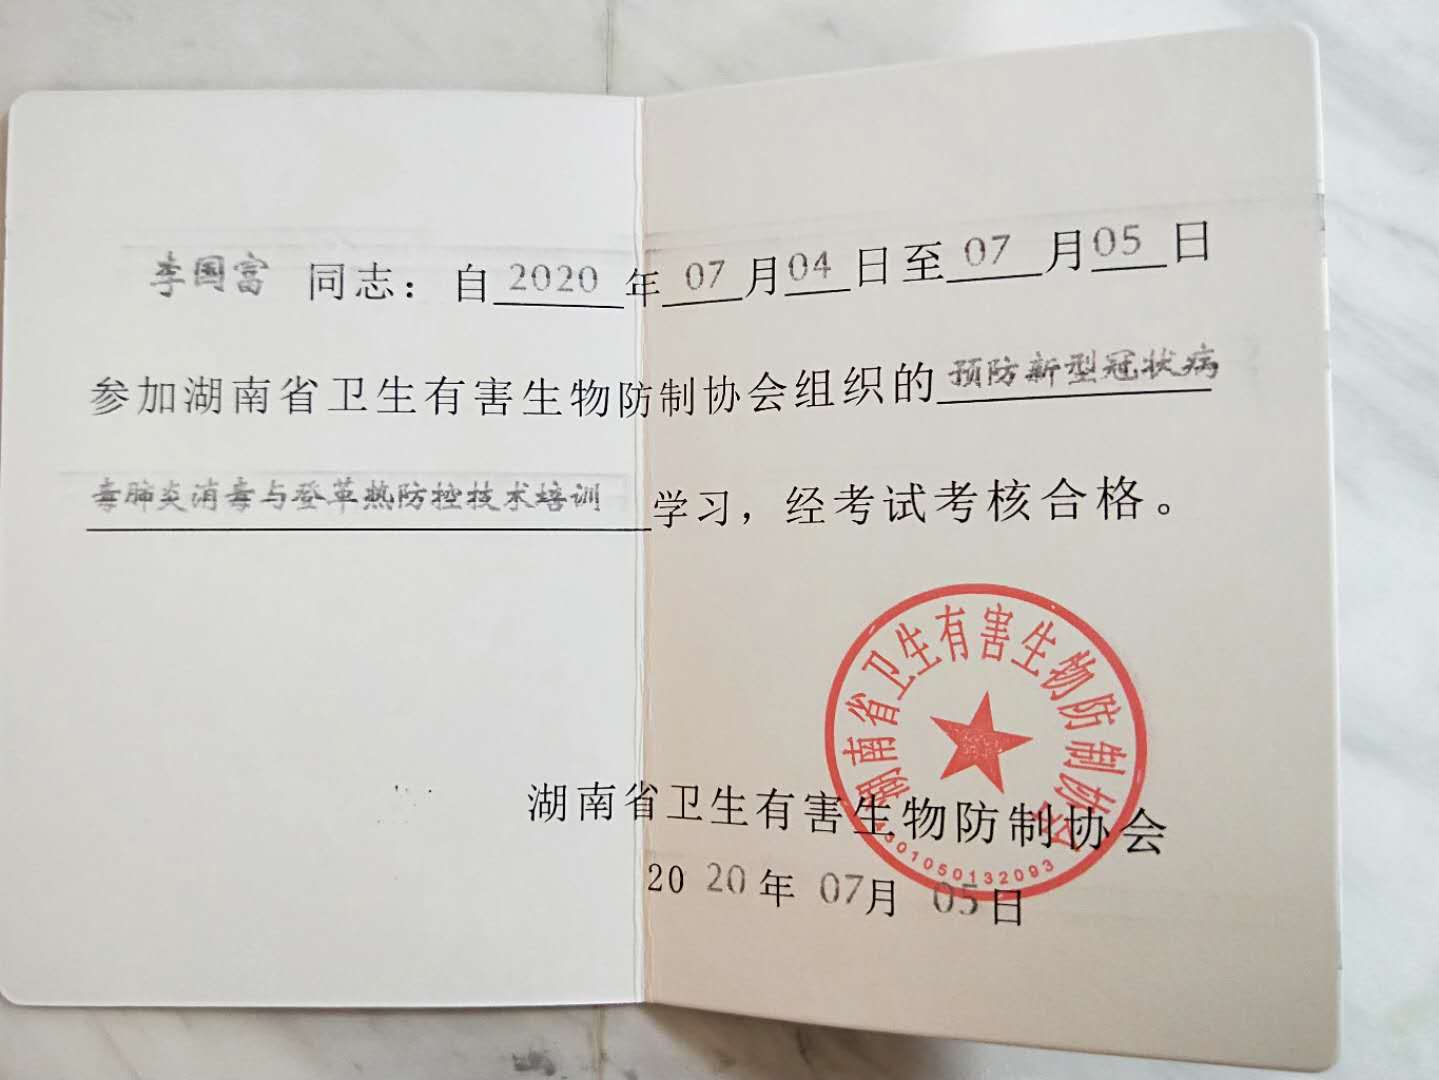 李国富 同志：自 2020 年 07 月 04 日至 07 月 05 日
参加湖南省卫生有害生物防制协会组织的 预防新型冠状病
毒肺炎消毒与登革热防控技术培训 学习，经考试考核合格。
湖南省卫生有害生物防制协会
4301050132093
湖南省卫生有害生物防制协会
20 20 年 07 月 05 日